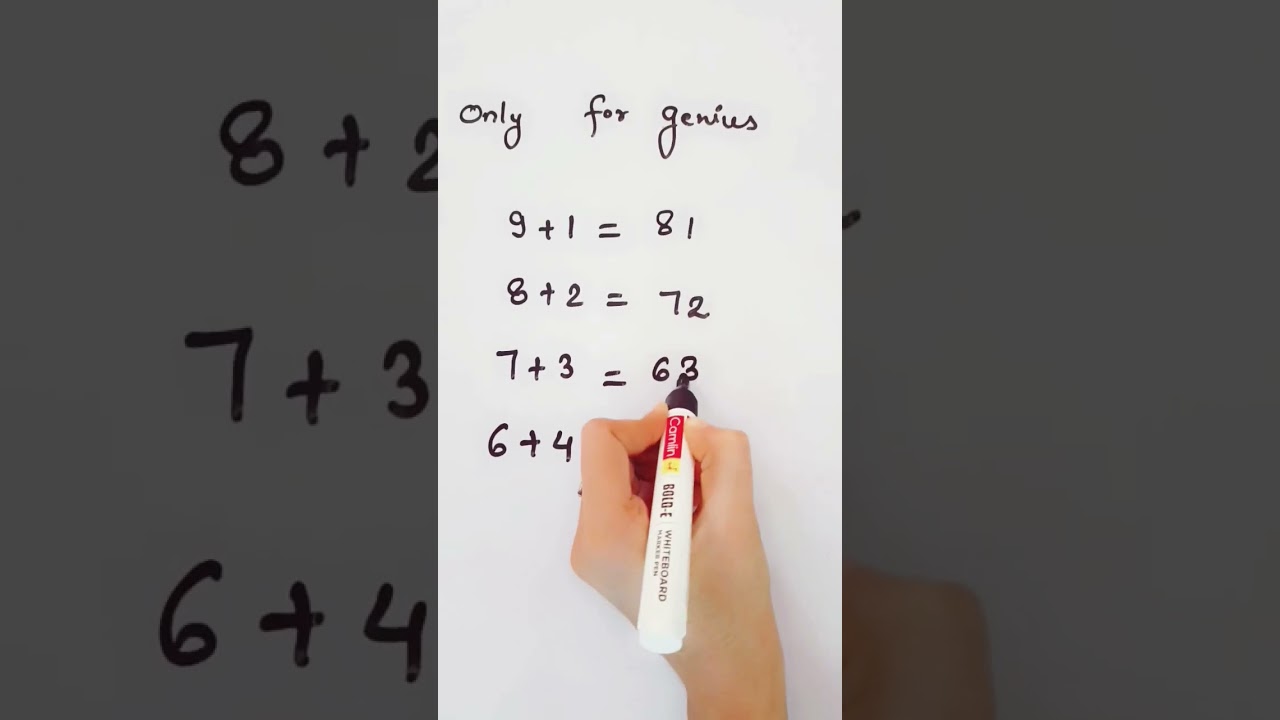 Only for genius
9+1 = 81
8+2 = 72
7+3 = 63
6+4
Camlin
BOLD-E
WHITEBOARD
MARKER PEN
8+2
7+3
6+4